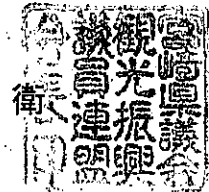 宮崎県議会
観光振興
議員連盟
衛